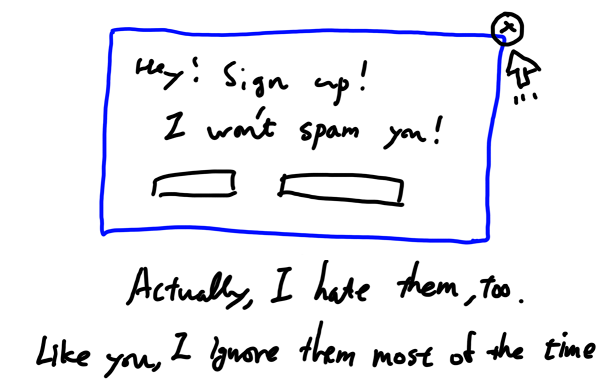 Hey! Sign up!
I won't spam you!
Actually, I hate them, too.
Like you, I ignore them most of the time